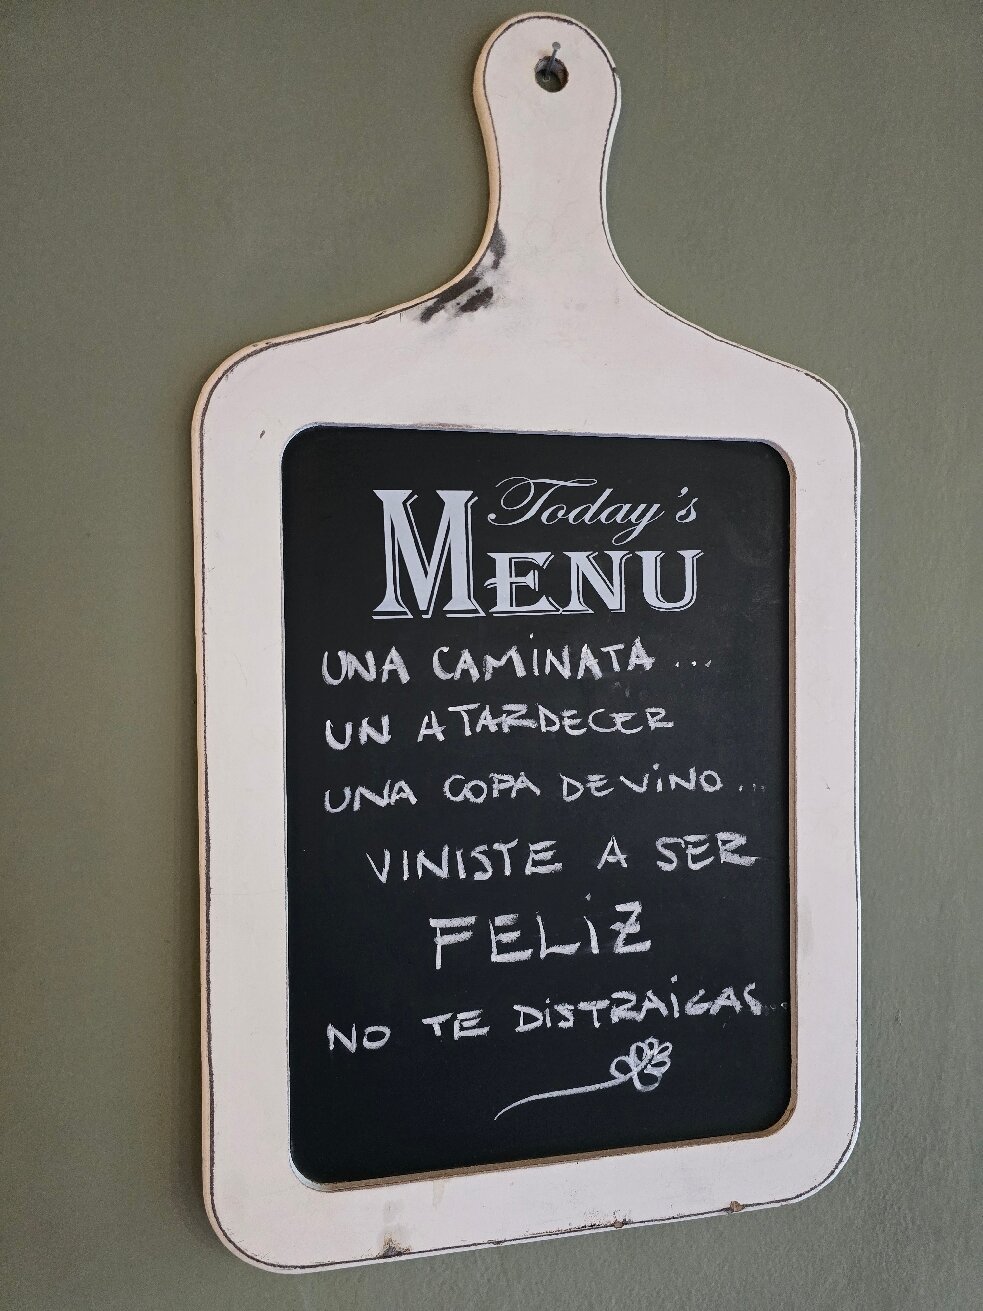 Today's
MENU
UNA CAMINATA...
UN ATARDECER
UNA COPA DE VINO...
VINISTE A SER
FELIZ
NO TE DISTRAIGAS...